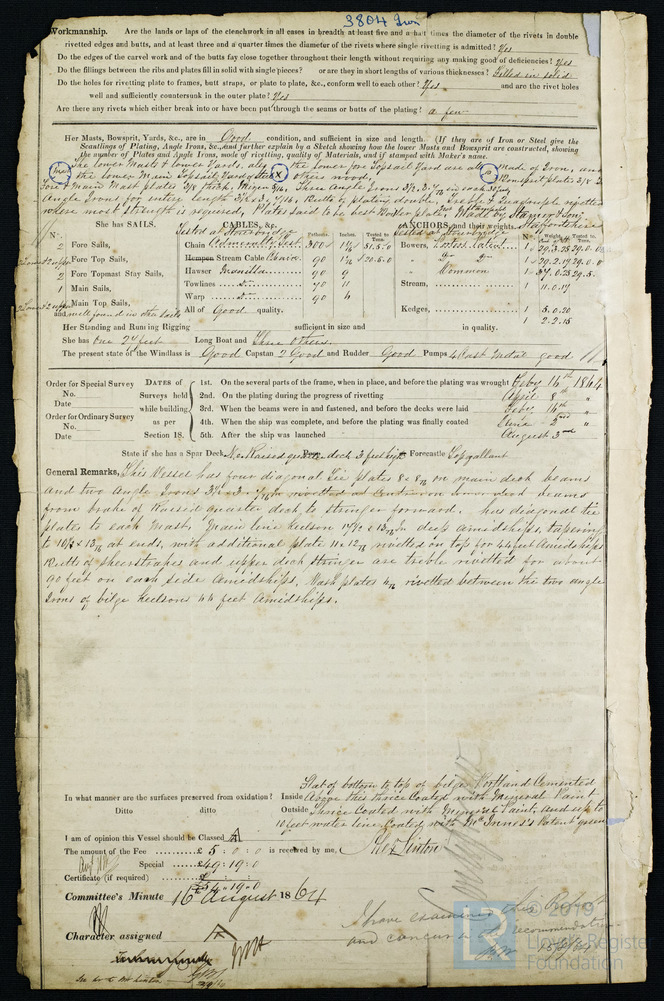 3804 Iron
Workmanship. Are the lands or laps of the clenchwork in all cases in breadth at least five and a half times the diameter of the rivets in double
rivetted edges and butts, and at least three and a quarter times the diameter of the rivets where single rivetting is admitted? Yes
Do the edges of the carvel work and of the butts fay close together throughout their length without requiring any making good of deficiencies? Yes
Do the fillings between the ribs and plates fill in solid with single pieces? or are they in short lengths of various thicknesses? Filled in solid
Do the holes for rivetting plate to frames, butt straps, or plate to plate, &c., conform well to each other? Yes and are the rivet holes
well and sufficiently countersunk in the outer plate? Yes
Are there any rivets which either break into or have been put through the seams or butts of the plating? a few
Her Masts, Bowsprit, Yards, &c., are in Good condition, and sufficient in size and length. (If they are of Iron or Steel give the
Scantlings of Plating, Angle Irons, &c., and further explain by a Sketch showing how the lower Masts and Bowsprit are constructed, showing
the number of Plates and Angle Irons, mode of rivetting, quality of Materials, and if stamped with Maker's name.
The lower Masts & lower Yards, also the lower fore Topsail Yard are all made of Iron, and
the lower Main Topsail Yard of Steel X others wood. Bowsprit plates
fore & Main Mast plates 3/8 thick, Mizen 5/16. Three Angle Irons 3½.3. in each
Angle Irons for entire length 3½ x 3. Butts of plating double, Treble & Quadruple rivetted
where most strength is required, Plates said to be best Boiler plate, and Stamped Made by
She has SAILS. CABLES, &c. ANCHORS, and their weights.
Tested at Stourbridge Tested at Stourbridge
No. Fathoms. Inches. Tested to Tons. No. Weight. Tested to Tons.
2 Fore Sails, Chain 300 Bowers,
Fore Top Sails, Hempen Stream Cable Chain 90
2 Fore Topmast Stay Sails, Hawser Manilla 90 9 Common
1 Main Sails, Towlines 90 11 Stream, 1 11.0.17
Main Top Sails, Warp 90 6 Kedges, 1 5.0.20
and well found in other sails All of Good quality. 1 2.2.15
Her Standing and Running Rigging sufficient in size and in quality.
She has One 24 feet Long Boat and Three others
The present state of the Windlass is Good Capstan 2 Good and Rudder Good Pumps 4 Cast Metal good
Order for Special Survey
No.
Date
Order for Ordinary Survey
No.
Date
DATES of Surveys held while building as per Section 18.
1st. On the several parts of the frame, when in place, and before the plating was wrought Feby 16th 1864
2nd. On the plating during the progress of rivetting April 8th "
3rd. When the beams were in and fastened, and before the decks were laid Feby 16th "
4th. When the ship was complete, and before the plating was finally coated June 2nd "
5th. After the ship was launched August 3rd "
State if she has a Spar Deck, No Raised quarter deck 3 feet high Forecastle Topgallant
General Remarks, This Vessel has four diagonal Tie plates on main deck beams
and two Angle Irons 3½ x 3 rivetted at Centre on lower deck beams
from brake of Raised quarter deck to stringer forward. has diagonal tie
plates to each Mast, Main line keelson deep amidships, tapering
to at ends, with additional plate rivetted on top for 44 feet Amidships
Butts of sheerstrakes and upper deck stringer are treble rivetted for about
90 feet on each side Amidships. Wash plates rivetted between the two angle
Irons of bilge keelsons 44 feet Amidships.
In what manner are the surfaces preserved from oxidation? Inside Flat of bottom to top of bilge Portland Cemented
Above this thrice Coated with Mineral Paint
Ditto ditto Outside Thrice Coated with Mineral Paint, and up to
10 feet water line Coated with McInnes's Patent green
I am of opinion this Vessel should be Classed A
The amount of the Fee £ 5 : 0 : 0 is received by me,
Special £49 : 19 : 0
Certificate (if required) £ : :
£54 : 19 : 0
Committee's Minute 16 August 1864
Character assigned A
I have examined this Report
and concur in the recommendation
© 2019
LR
Lloyd's Register
Foundation